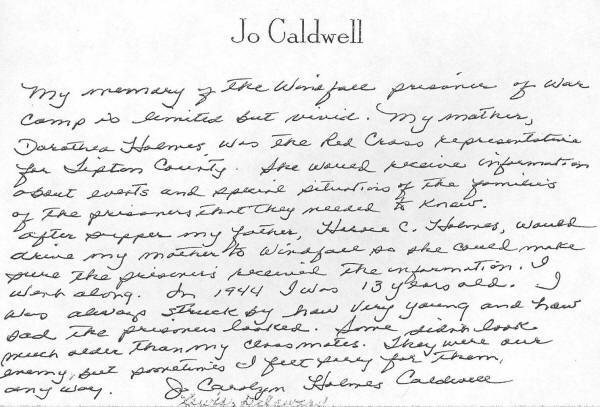 Jo Caldwell
My memory of the Windfall prisoner of War
Camp is limited but vivid. My mother,
Dorothea Holmes, was the Red Cross representative
for Tipton County. She would receive information
about events and special situations of the families
of the prisoners that they needed to know.
After supper my father, Horace C. Holmes, would
drive my mother to Windfall so she could make
sure the prisoners received the information. I
went along. In 1944 I was 13 years old. I
was always struck by how very young and how
sad the prisoners looked. Some didn't look
much older than my classmates. They were our
enemy, but sometimes I felt sorry for them,
any way. Jo Carolyn Holmes Caldwell